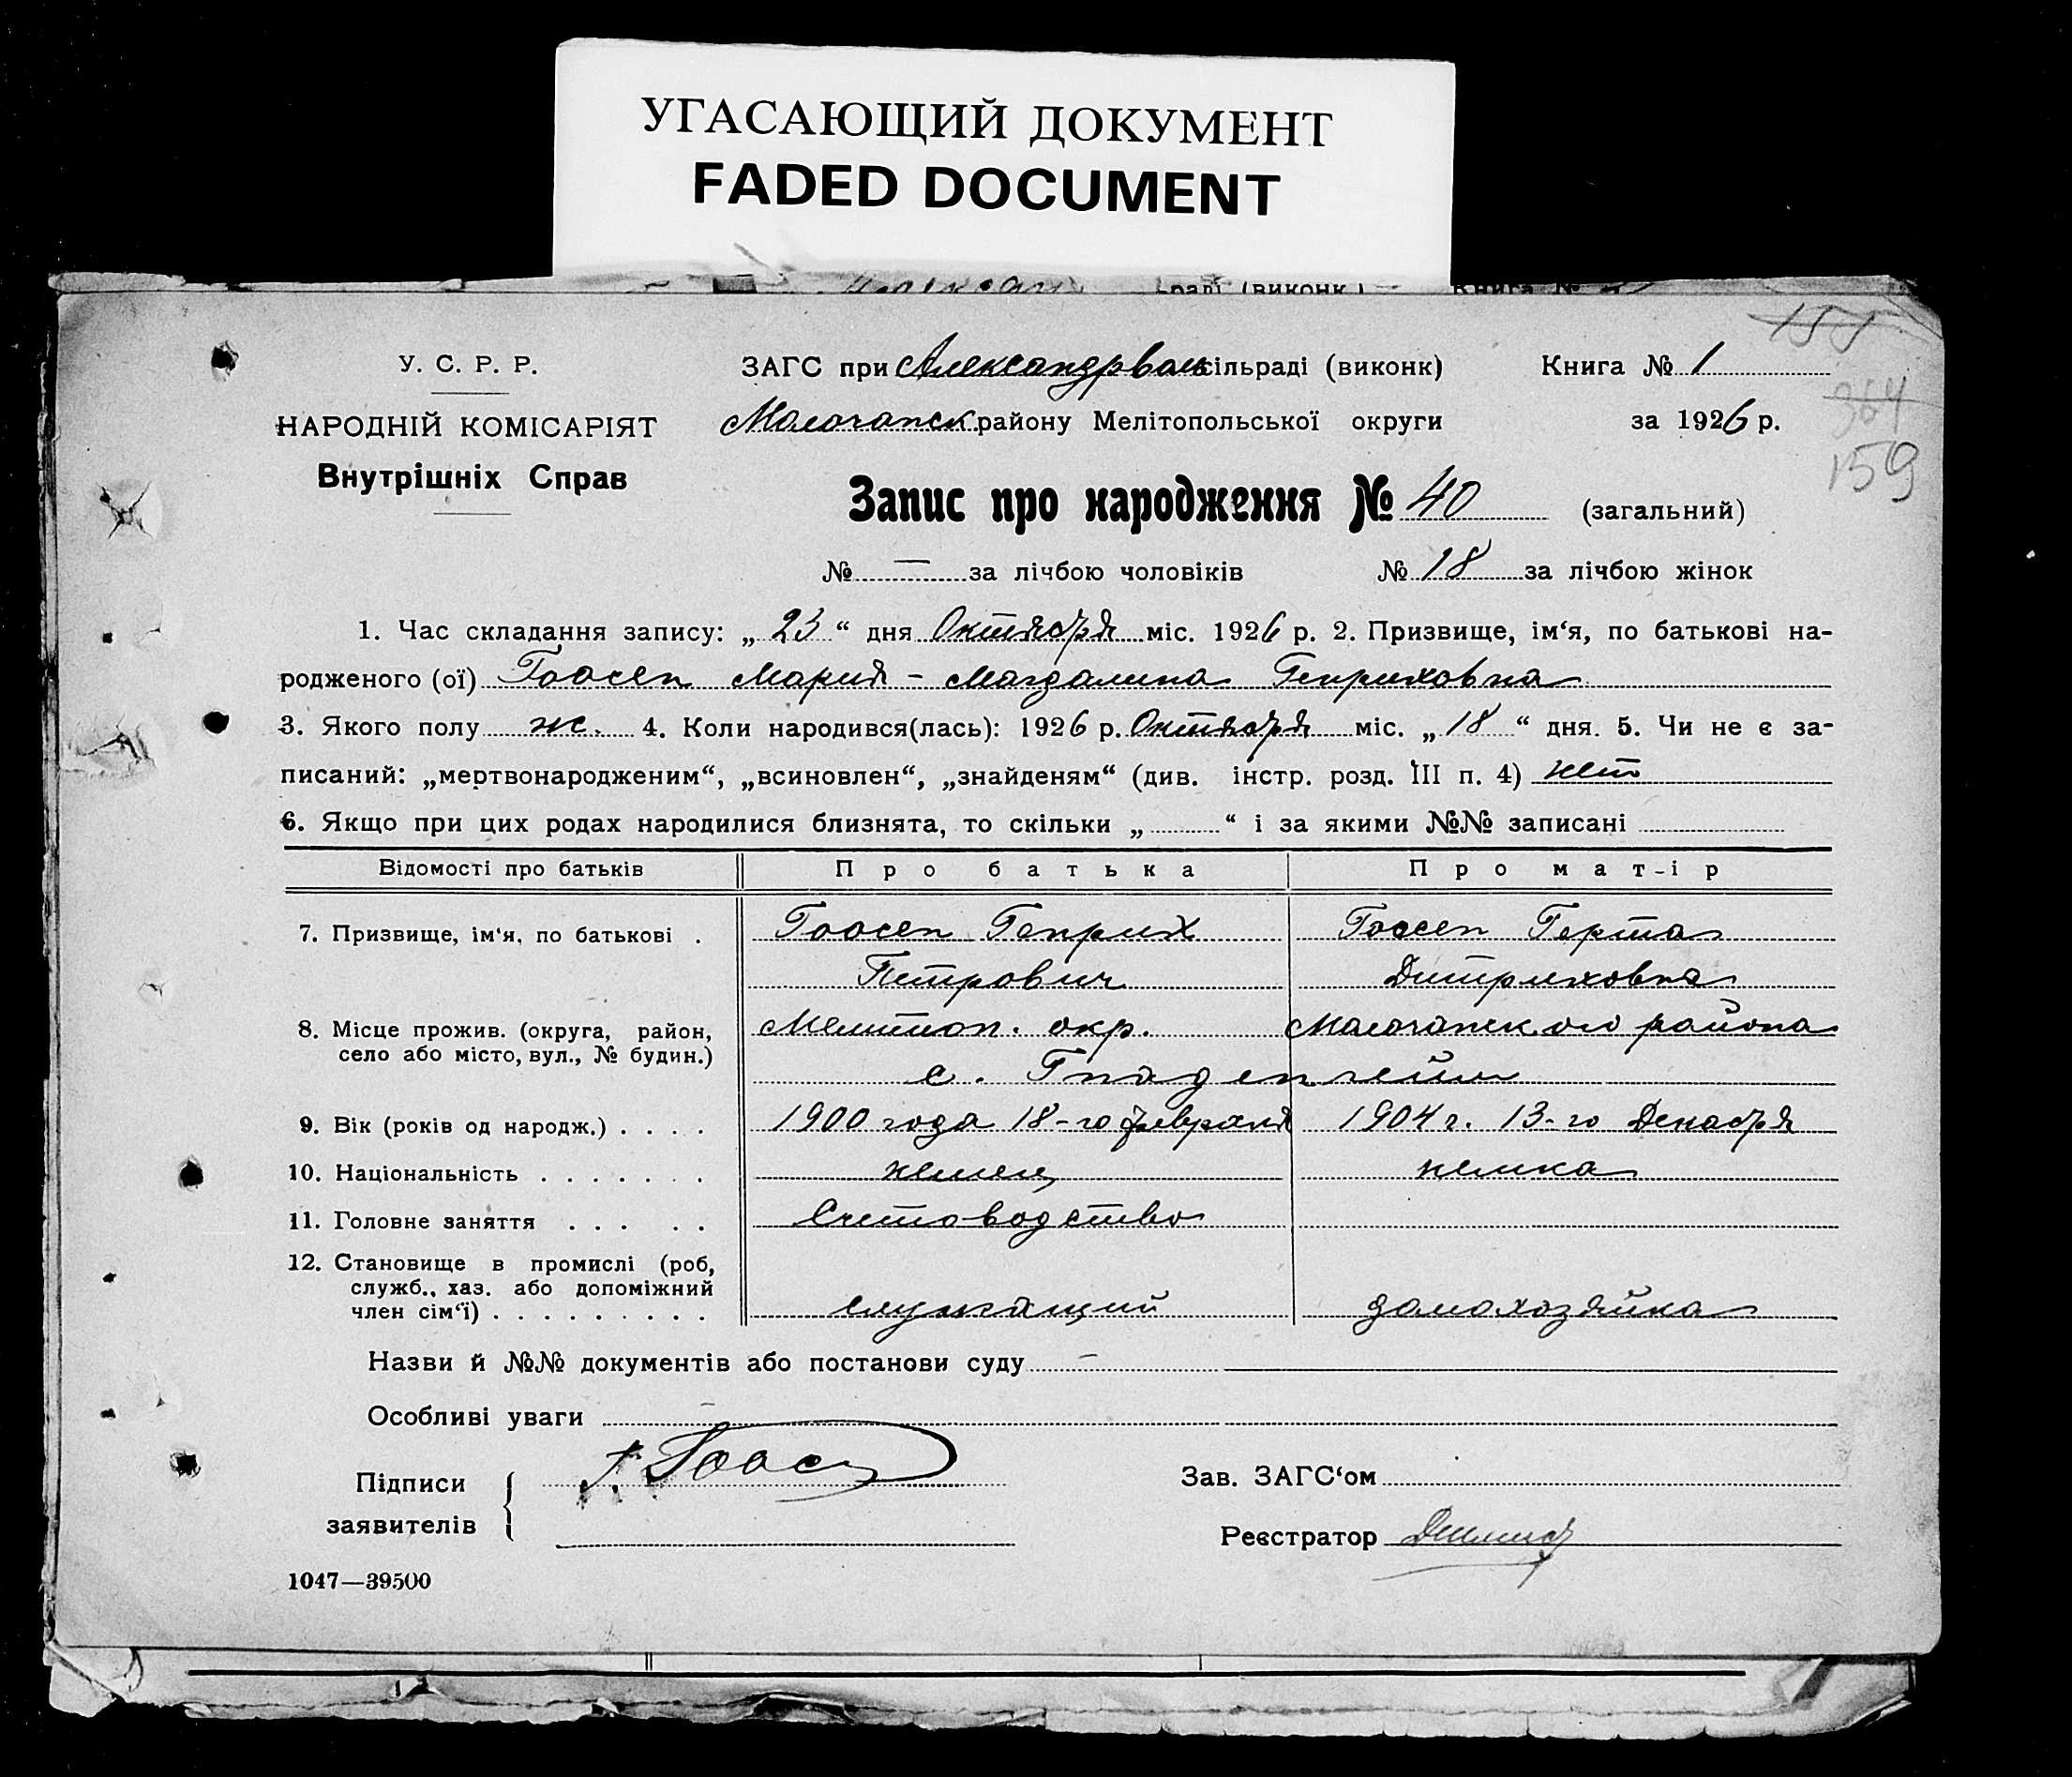 УГАСАЮЩИЙ ДОКУМЕНТ
FADED DOCUMENT
раді (виконк.) Книга №
151
У. С. Р. Р. ЗАГС при Александрвольсільраді (виконк) Книга № 1
364
НАРОДНІЙ КОМІСАРІЯТ Молочанск.району Мелітопольської округи за 1926 р.
159
Внутрішніх Справ
Запис про народження № 40 (загальний)
№ — за лічбою чоловіків № 18 за лічбою жінок
1. Час складання запису: „ 23 “ дня Октября міс. 1926 р. 2. Призвище, ім‘я, по батькові на-
родженого (ої) Гоосен Мария - Магдалина Генриховна
3. Якого полу ж. 4. Коли народився(лась): 1926 р. Октября міс. „ 18 “ дня. 5. Чи не є за-
писаний: „мертвонародженим“, „всиновлен“, „знайденям“ (див. інстр. розд. III п. 4) нет
6. Якщо при цих родах народилися близнята, то скільки „ “ і за якими №№ записані
Відомості про батьків Про батька Про мат-ір
7. Призвище, ім‘я, по батькові . Гоосен Генрих Гоосен Герта
Петрович Дитриховна
8. Місце прожив. (округа, район, Мелитоп. окр. Молочанского района
село або місто, вул., № будин.) с. Гнаденгейм
9. Вік (років од народж.) . . . . 1900 года 18-го февраля 1904 г. 13-го Декабря
10. Національність . . . . . . . немец немка
11. Головне заняття . . . . . Счетоводство
12. Становище в промислі (роб,
служб., хаз. або допоміжний
член сім‘ї) . . . . . . . . . служащий домохозяйка
Назви й №№ документів або постанови суду —
Особливі уваги —
Підписи Гоосен Зав. ЗАГС‘ом
заявителів Реєстратор
1047—39500